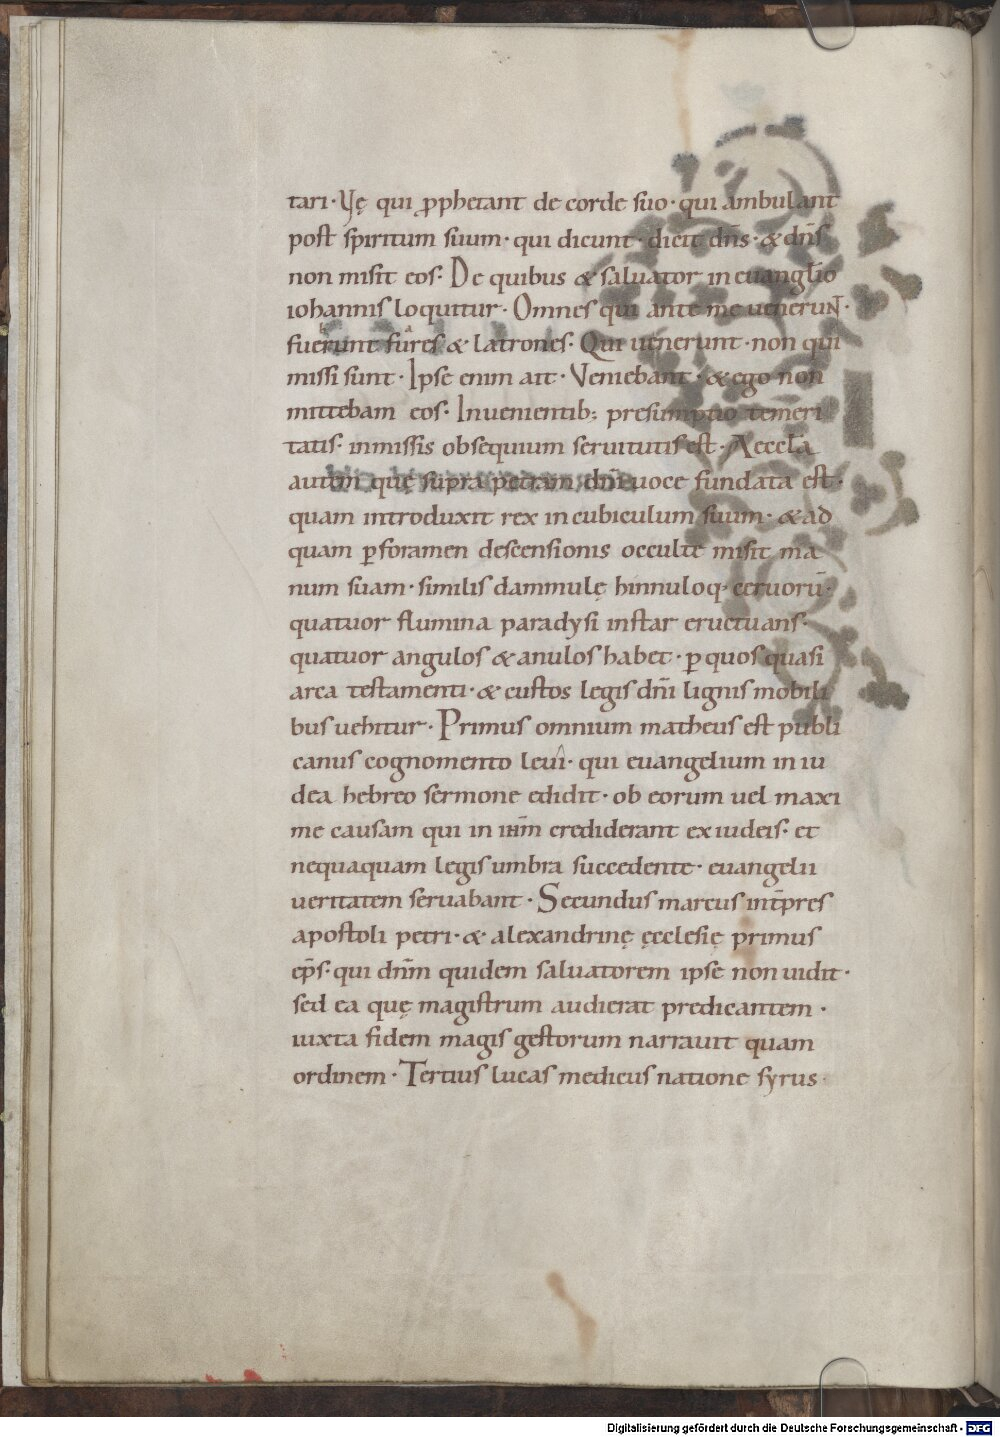 tari · Vę qui ꝓphetant de corde suo · qui ambulant
post spiritum suum · qui dicunt · dicit dn̄s · & dn̄s
non misit eos · De quibus & saluator in euanglīo
iohannis loquitur · Omnes qui ante me uenerunt ·
fuerunt fures & latrones · Qui uenerunt · non qui
missi sunt · Ipse enim ait · Veniebant · & ego non
mittebam eos · In uenientib; presumptio temeri
tatis · in missis obsequium seruitutis est · Aeccl̄a
autem quę supra petram dn̄i uoce fundata est ·
quam introduxit rex in cubiculum suum · & ad
quam ꝑ foramen descensionis occulte misit ma
num suam · similis dammulę hinnuloq· ceruorū ·
quatuor flumina paradysi instar eructuans ·
quatuor angulos & anulos habet · ꝑ quos quasi
arca testamenti · & custos legis dn̄i lignis mobili
bus uehitur · Primus omnium matheus est publi
canus cognomento leui · qui euangelium in iu
dea hebreo sermone edidit · ob eorum uel maxi
me causam qui in ih̄m crediderant ex iudeis · et
nequaquam legis umbra succedente · euangelii
ueritatem seruabant · Secundus marcus int̄pres
apostoli petri · & alexandrinę ęcclesię primus
ep̄s · qui dn̄m quidem saluatorem ipse non uidit ·
sed ea quę magistrum audierat predicantem ·
iuxta fidem magis gestorum narrauit quam
ordinem · Tertius lucas medicus natione syrus ·
Digitalisierung gefördert durch die Deutsche Forschungsgemeinschaft - DFG